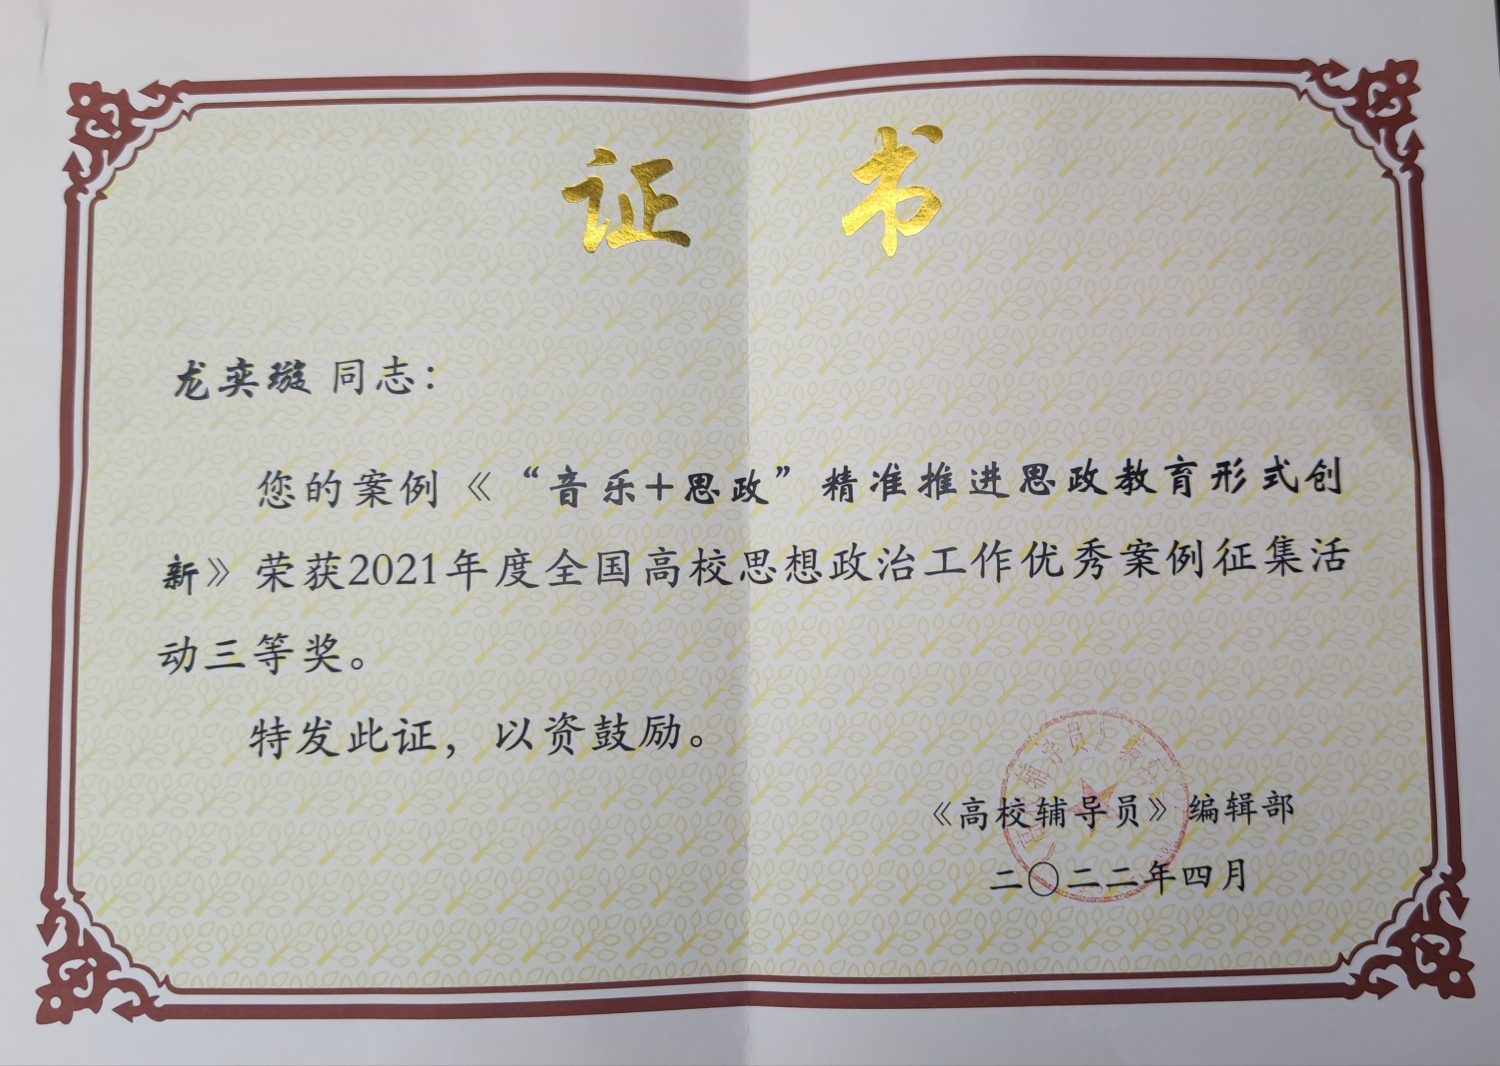 证书
龙奕璇 同志：
您的案例《“音乐+思政”精准推进思政教育形式创
新》荣获2021年度全国高校思想政治工作优秀案例征集活
动三等奖。
特发此证，以资鼓励。
《高校辅导员》编辑部
二〇二二年四月